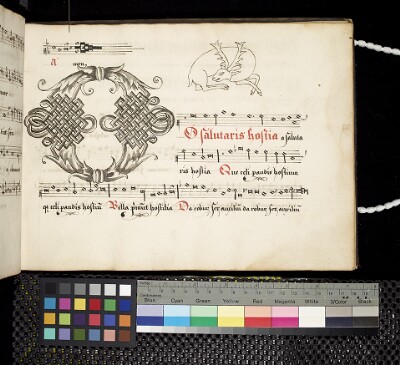 O salutaris hostia o saluta
ris hostia Que celi pandis hostium
q celi pandis hostiū Bella premūt hostilia Da robur fer auxiliū da robur fer auxiliū
Centimetres
Blue Cyan Green Yellow Red Magenta White 3/Color Black